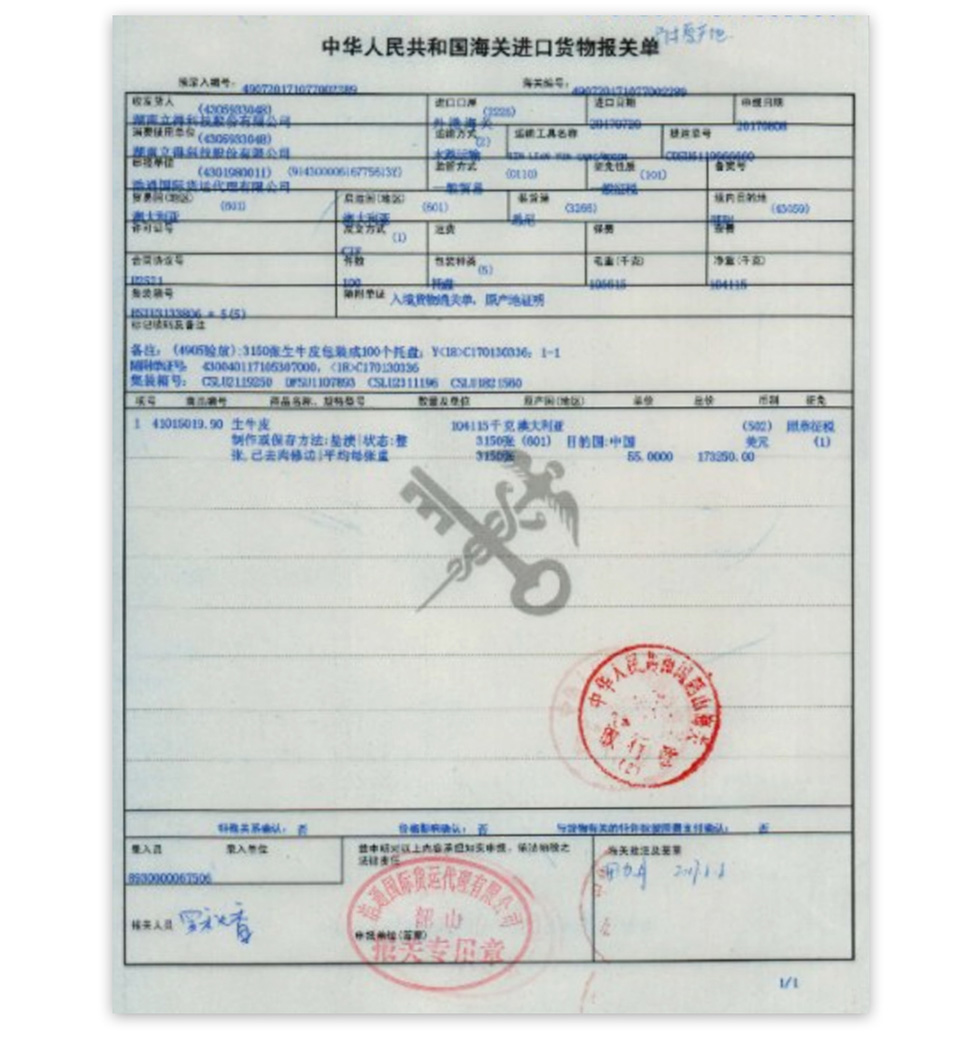 附原产地
中华人民共和国海关进口货物报关单
预录入编号: 490720171077002289 海关编号: 490720171077002289
收发货人 (4305933048) 进口口岸 (2225) 进口日期 申报日期
湖南立得科技股份有限公司 外港海关 20170720 20170808
消费使用单位 (4305933048) 运输方式 (2) 运输工具名称 提运单号
湖南立得科技股份有限公司 水路运输
申报单位 (4301980011) 监管方式 (0110) 征免性质 (101) 备案号
国际货运代理有限公司 一般贸易 一般征税
贸易国(地区) (601) 启运国(地区) (601) 装货港 (3266) 境内目的地 (43059)
澳大利亚 澳大利亚 悉尼
许可证号 成交方式 (1) 运费 保费 杂费
CIF
合同协议号 件数 包装种类 (5) 毛重(千克) 净重(千克)
100 托盘 105615 104115
集装箱号 随附单证 入境货物通关单, 原产地证明
* 5(5)
标记唛码及备注
备注: (4905验放):3150张生牛皮包装成100个托盘; Y<18>C170130336; 1-1
随附单证号: 430040117105307000, <18>C170130336
集装箱号: CSLU2119250 DFSU1107893 CSLU2311196 CSLU1821560
项号 商品编号 商品名称、规格型号 数量及单位 原产国(地区) 单价 总价 币制 征免
1 41015019.90 生牛皮 104115千克 澳大利亚 (502) 照章征税
制作或保存方法:盐渍|状态:整 3150张 (601) 目的国:中国 美元 (1)
张,已去肉修边|平均每张重 3150张 55.0000 173250.00
中华人民共和国韶山海关
放行章
(2)
特殊关系确认: 否 价格影响确认: 否 与货物有关的特许权使用费支付确认: 否
录入员 录入单位 兹申明对以上内容承担如实申报、依法纳税之 海关批注及签章
法律责任
8930000067506
报关人员 申报单位(签章)
国际货运代理有限公司
韶山
报关专用章
1/1